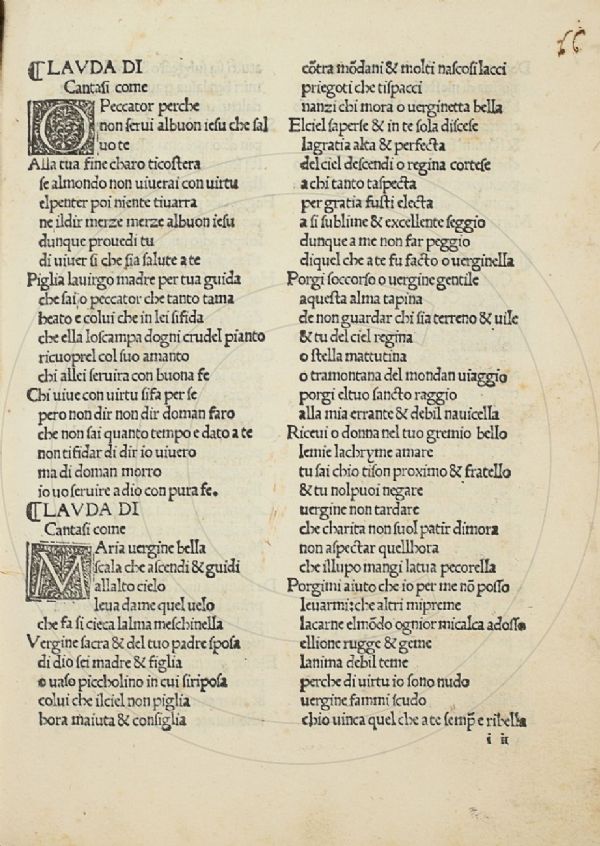 66
⁋LAVDA DI
Cantasi come
O Peccator perche
non serui albuon iesu che sal
uo te
Alla tua fine charo ticostera
se almondo non uiuerai con uirtu
elpenter poi niente tiuarra
ne ildir merze merze albuon iesu
dunque prouedi tu
di uiuer si che sia salute a te
Piglia lauirgo madre per tua guida
che sai o peccator che tanto tama
beato e colui che in lei sifida
che ella loscampa dogni crudel pianto
ricuoprel col suo amanto
chi allei seruira con buona fe
Chi uiue con uirtu sifa per se
pero non dir non dir doman faro
che non sai quanto tempo e dato a te
non tifidar di dir io uiuero
ma di doman morro
io uo seruire a dio con pura fe.
⁋LAVDA DI
Cantasi come
MAria uergine bella
scala che ascendi & guidi
allalto cielo
leua da me quel uelo
che fa si cieca lalma meschinella
Vergine sacra & del tuo padre sposa
di dio sei madre & figlia
o uaso piccholino in cui siriposa
colui che ilciel non piglia
hora maiuta & consiglia
cõtra mõdani & molti nascosi lacci
priegoti che tispacci
nanzi chi mora o uerginetta bella
Elciel saperse & in te sola discese
lagratia alta & perfecta
del ciel descendi o regina cortese
a chi tanto taspecta
per gratia fusti electa
a si sublime & excellente seggio
dunque a me non far peggio
diquel che a te fu facto o uerginella
Porgi soccorso o uergine gentile
aquesta alma tapina
de non guardar chi sia terreno & uile
& tu del ciel regina
o stella mattutina
o tramontana del mondan uiaggio
porgi eltuo sancto raggio
alla mia errante & debil nauicella
Riceui o donna nel tuo gremio bello
lemie lachryme amare
tu sai chio tison proximo & fratello
& tu nolpuoi negare
uergine non tardare
che charita non suol patir dimora
non aspectar quellhora
che illupo mangi latua pecorella
Porgimi aiuto che io per me nõ posso
leuarmi: che altri mipreme
lacarne elmõdo ognior micalca adosso
ellione rugge & geme
lanima debil teme
perche di uirtu io sono nudo
uergine fammi scudo
chio uinca quel che a te semp̃ e ribella
i ii